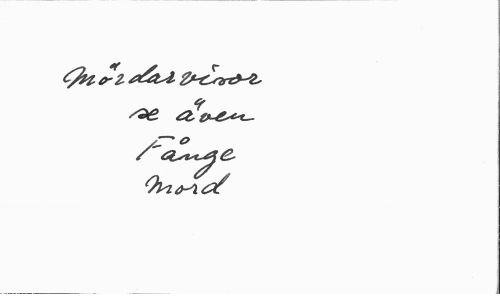 Mördarvisor
se även
Fånge
Mord